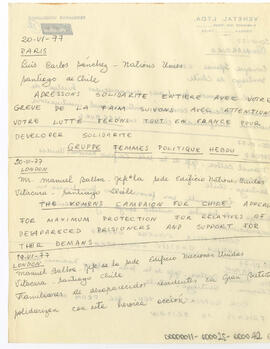 20-VI-77
PARIS
Luis Carlos Sanchez - Nations Unies
Santiago de Chile
ADRESSONS SOLIDARITE ENTIERE AVEC VOTRE
GREVE DE LA FAIM SUIVONS AVEC ATTENTION
VOTRE LUTTE FERONS TOUT EN FRANCE POUR
DEVELOPER SOLIDARITE
GRUPPE FEMMES POLITIQUE HEBDO
20-VI-77
LONDON
Mr. Manuel Balboa. Jefe la sede Edificio Nations Unidas
Vitacura - Santiago Chile
THE WOMENS CAMPAIGN FOR CHILE APPEAL
FOR MAXIMUM PROTECTION FOR RELATIVES OF
DESAPARECED PRISIONERS AND SUPPORT FOR
THEIR DEMANS
LONDON
Manuel Balboa. Jefe de la sede Edificio Naciones Unidas
Vitacura Santiago Chile
Familiares de desaparecidos residentes en Gran Bretaña
solidarizan con esta heroica acción